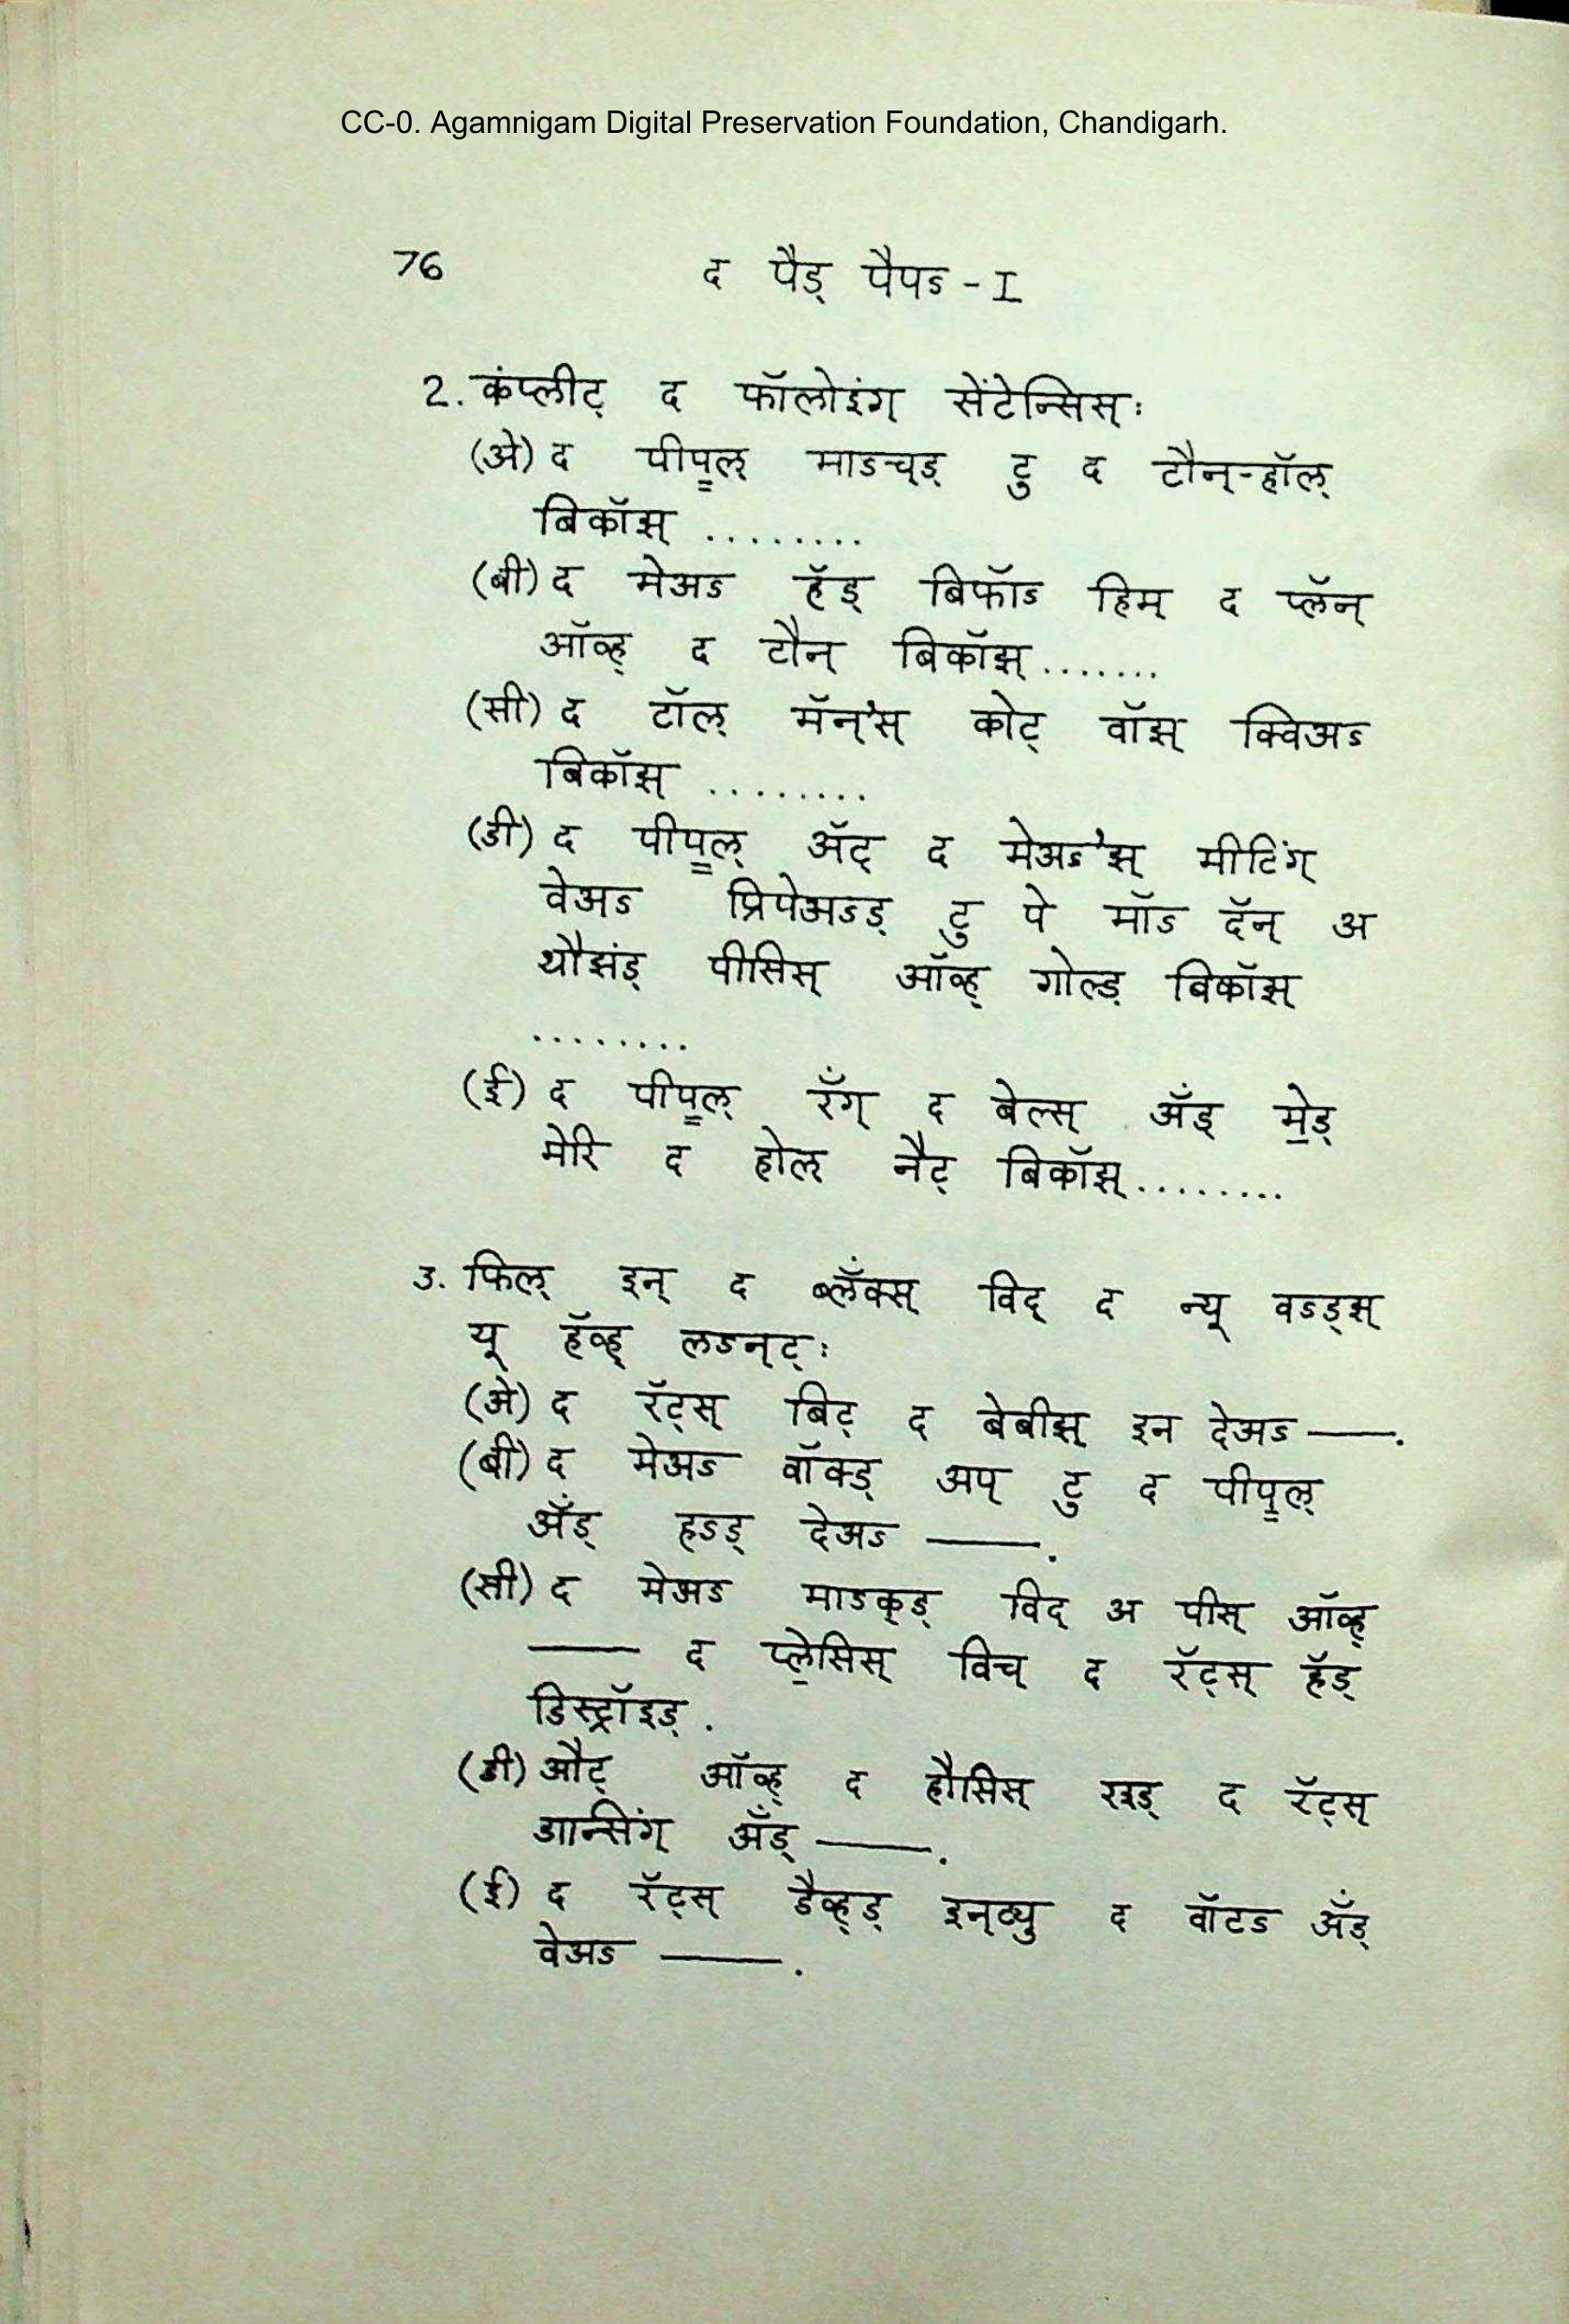 CC-0. Agamnigam Digital Preservation Foundation, Chandigarh.
76 द पैड् पैपऽ - I
2. कंप्लीट् द फॉलोइंग् सेंटेन्सिस्:
(अे) द पीपॖल् माऽच्ड् टु द टौन्-हॉल्
बिकॉझ् .........
(बी) द मेअऽ हॅड् बिफॉऽ हिम् द प्लॅन्
ऑव्ह् द टौन् बिकॉझ् .......
(सी) द टॉल् मॅन्'स् कोट् वॉझ् क्विअऽ
बिकॉझ् .........
(डी) द पीपॖल् ॲट् द मेअऽ'झ् मीटिंग्
वेअऽ प्रिपेअऽड् टु पे मॉऽ दॅन् अ
थौझंड् पीसिस् ऑव्ह् गोल्ड् बिकॉझ्
........
(ई) द पीपॖल् रॅंग् द बेल्स् ॲंड् मे॒ड्
मेरि द होल् नैट् बिकॉझ् .........
3. फिल् इन् द ब्लॅंक्स् विद् द न्यू वऽड्झ्
यू हॅव्ह् लऽन्ट्:
(अे) द रॅट्स् बिट् द बेबीझ् इन देअऽ —.
(बी) द मेअऽ वॉक्ड् अप् टु द पीपॖल्
ॲंड् हऽड् देअऽ —.
(सी) द मेअऽ माऽक्ड् विद् अ पीस् ऑव्ह्
— द प्ले॒सिस् विच् द रॅट्स् हॅड्
डिस्ट्रॉइड्.
(डी) औट् ऑव्ह् द हौसिस् द रॅट्स्
डान्सिंग् ॲंड् —.
(ई) द रॅट्स् डैव्ह्ड् इन्ट्यु द वॉटऽ ॲंड्
वेअऽ —.